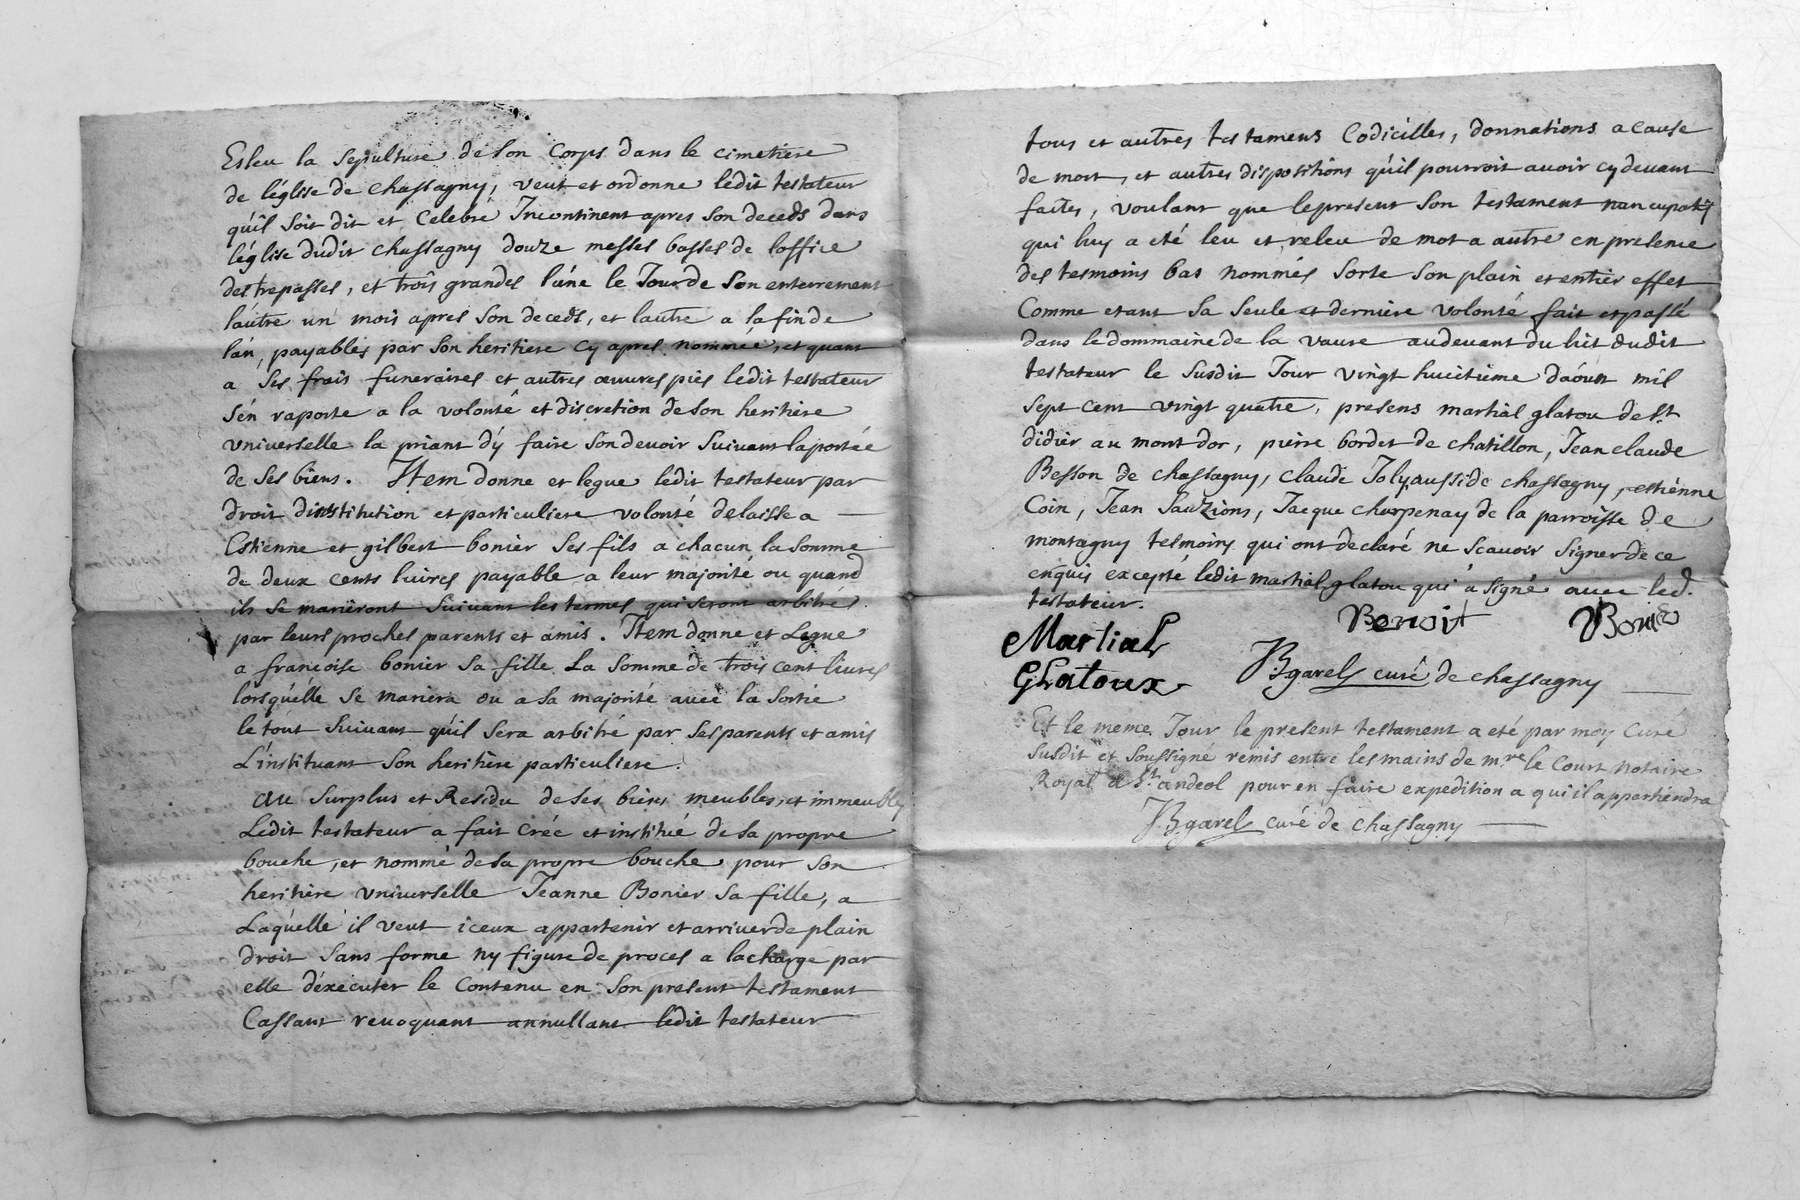 Esleu la sepulture de son corps dans le cimetiere
de léglise de chassagny, veut et ordonne ledit testateur
qu'il soit dit et Celebré Incontinent apres son deceds dans
léglise dudit chassagny douze messes basses de loffice
des trepassés, et trois grandes l'une le Jour de son enterrement
lautre un mois apres son deceds, et lautre a la fin de
lán, payables par son heritiere cy apres nommée, et quant
a ses frais funeraires et autres œuvres pies ledit testateur
s'en raporte a la volonté et discretion de son heritière
vniverselle la priant d'y faire son devoir suivant la portée
de ses biens. Item donne et legue ledit testateur par
droit dinstitution et particuliere volonté delaisse a
Estienne et gilbert bonier ses fils a chacun la somme
de deux cents livres payable a leur majorité ou quand
ils se marieront suivant les termes qui seront arbitrés
par leurs proches parents et amis. Item donne et Legue
a francoise bonier sa fille La somme de trois cent livres
lorsqu'elle se mariera ou a sa majorité avec la sortie
le tout suivant qu'il sera arbitré par ses parents et amis
L'instituant son heritière particuliere.
au surplus et Residu de ses biens meubles, et immeubles
Ledit testateur a fait créé et institué de sa propre
bouche, et nommé de sa propre bouche pour son
heritière vniverselle Jeanne Bonier sa fille, a
Laquelle il veut iceux appartenir et arriver de plain
droit sans forme ny figure de proces a la charge par
elle d'éxécuter le contenu en son present testament
Cassant revoquant annullant ledit testateur
tous et autres testamens Codicilles, donnations a cause
de mort, et autres dispositions qu'il pourroit avoir cy devant
faites, voulant que le present son testament nuncupatif
qui luy a eté leu et releu de mot a autre en presence
des tesmoins bas nommés sorte son plain et entier effet
Comme etant sa seule et derniere volonté fait et passé
dans le dommaine de la vaure audevant du lict dudit
testateur le susdit Jour vingt huitième d'aoust mil
sept cent vingt quatre, presens martial glatou de St
didier au mont dor, pierre bordet de chatillon, Jean claude
Besson de chassagny, claude Joly aussi de chassagny, estienne
Coin, Jean Pauzions, Jacque charpenay de la parroisse de
montagny tesmoins qui ont declaré ne scavoir signer de ce
enquis excepté ledit martial glatou qui a signé avec led.
testateur.
Benoit Bonier
Martial
GLatoux
J.B garel curé de chassagny
Et le meme Jour le present testament a eté par moy Curé
susdit et soussigné remis entre les mains de mre le Court notaire
Royal a St. andeol pour en faire expedition a qui il appartiendra
J.B garel curé de chassagny